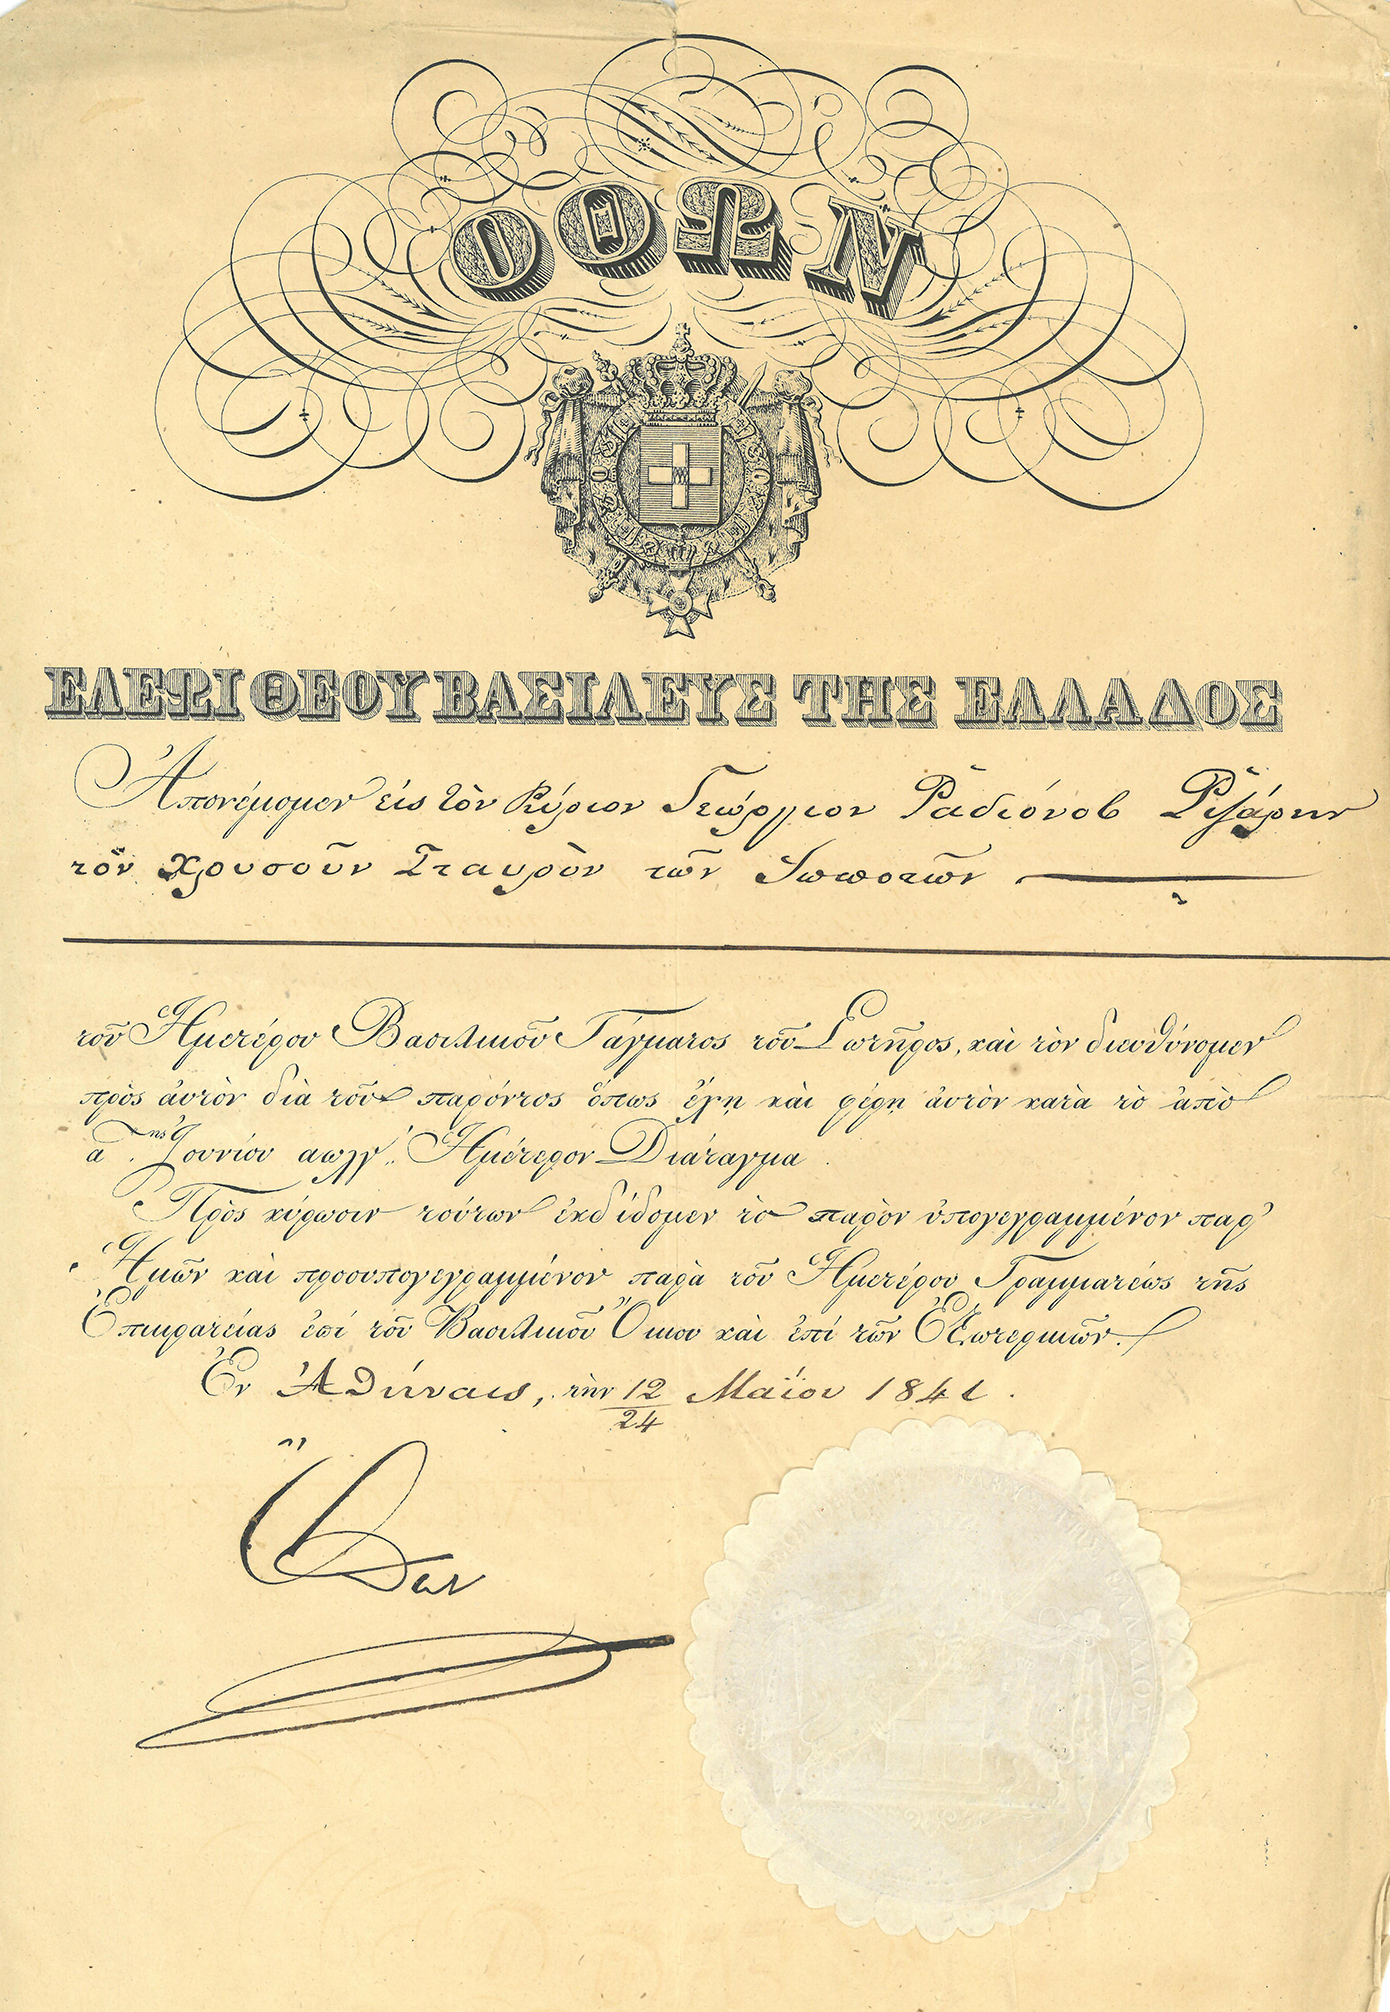 ΟΘΩΝ
ΕΛΕΩι ΘΕΟΥ ΒΑΣΙΛΕΥΣ ΤΗΣ ΕΛΛΑΔΟΣ
Ἀπονέμομεν εἰς τὸν Κύριον Γεώργιον Ῥαδιόνοβ Ῥιζάρην
τὸν Χρυσοῦν Σταυρὸν τῶν Ἱπποτῶν
τοῦ Ἡμετέρου Βασιλικοῦ Τάγματος τοῦ Σωτῆρος, καὶ τὸν διευθύνομεν
πρὸς ἀυτὸν διὰ τοῦ παρόντος ὅπως ἔχῃ καὶ φέρῃ ἀυτὸν κατὰ τὸ ἀπὸ
ά.ης Ἰουνίου αωλγ΄. Ἡμέτερον Διάταγμα.
Πρὸς κύρωσιν τούτων ἐκδίδομεν τὸ παρὸν ὑπογεγραμμένον παρ᾽
Ἡμῶν καὶ προσυπογεγραμμένον παρὰ τοῦ Ἡμετέρου Γραμματέως τῆς
Ἐπικρατείας ἐπί τοῦ Βασιλικοῦ Ὄικου καὶ ἐπί τῶν Ἐξωτερικῶν.
Ἐν Ἀθήναις, τὴν 12/24 Μαΐου 1841.
Ὄθων